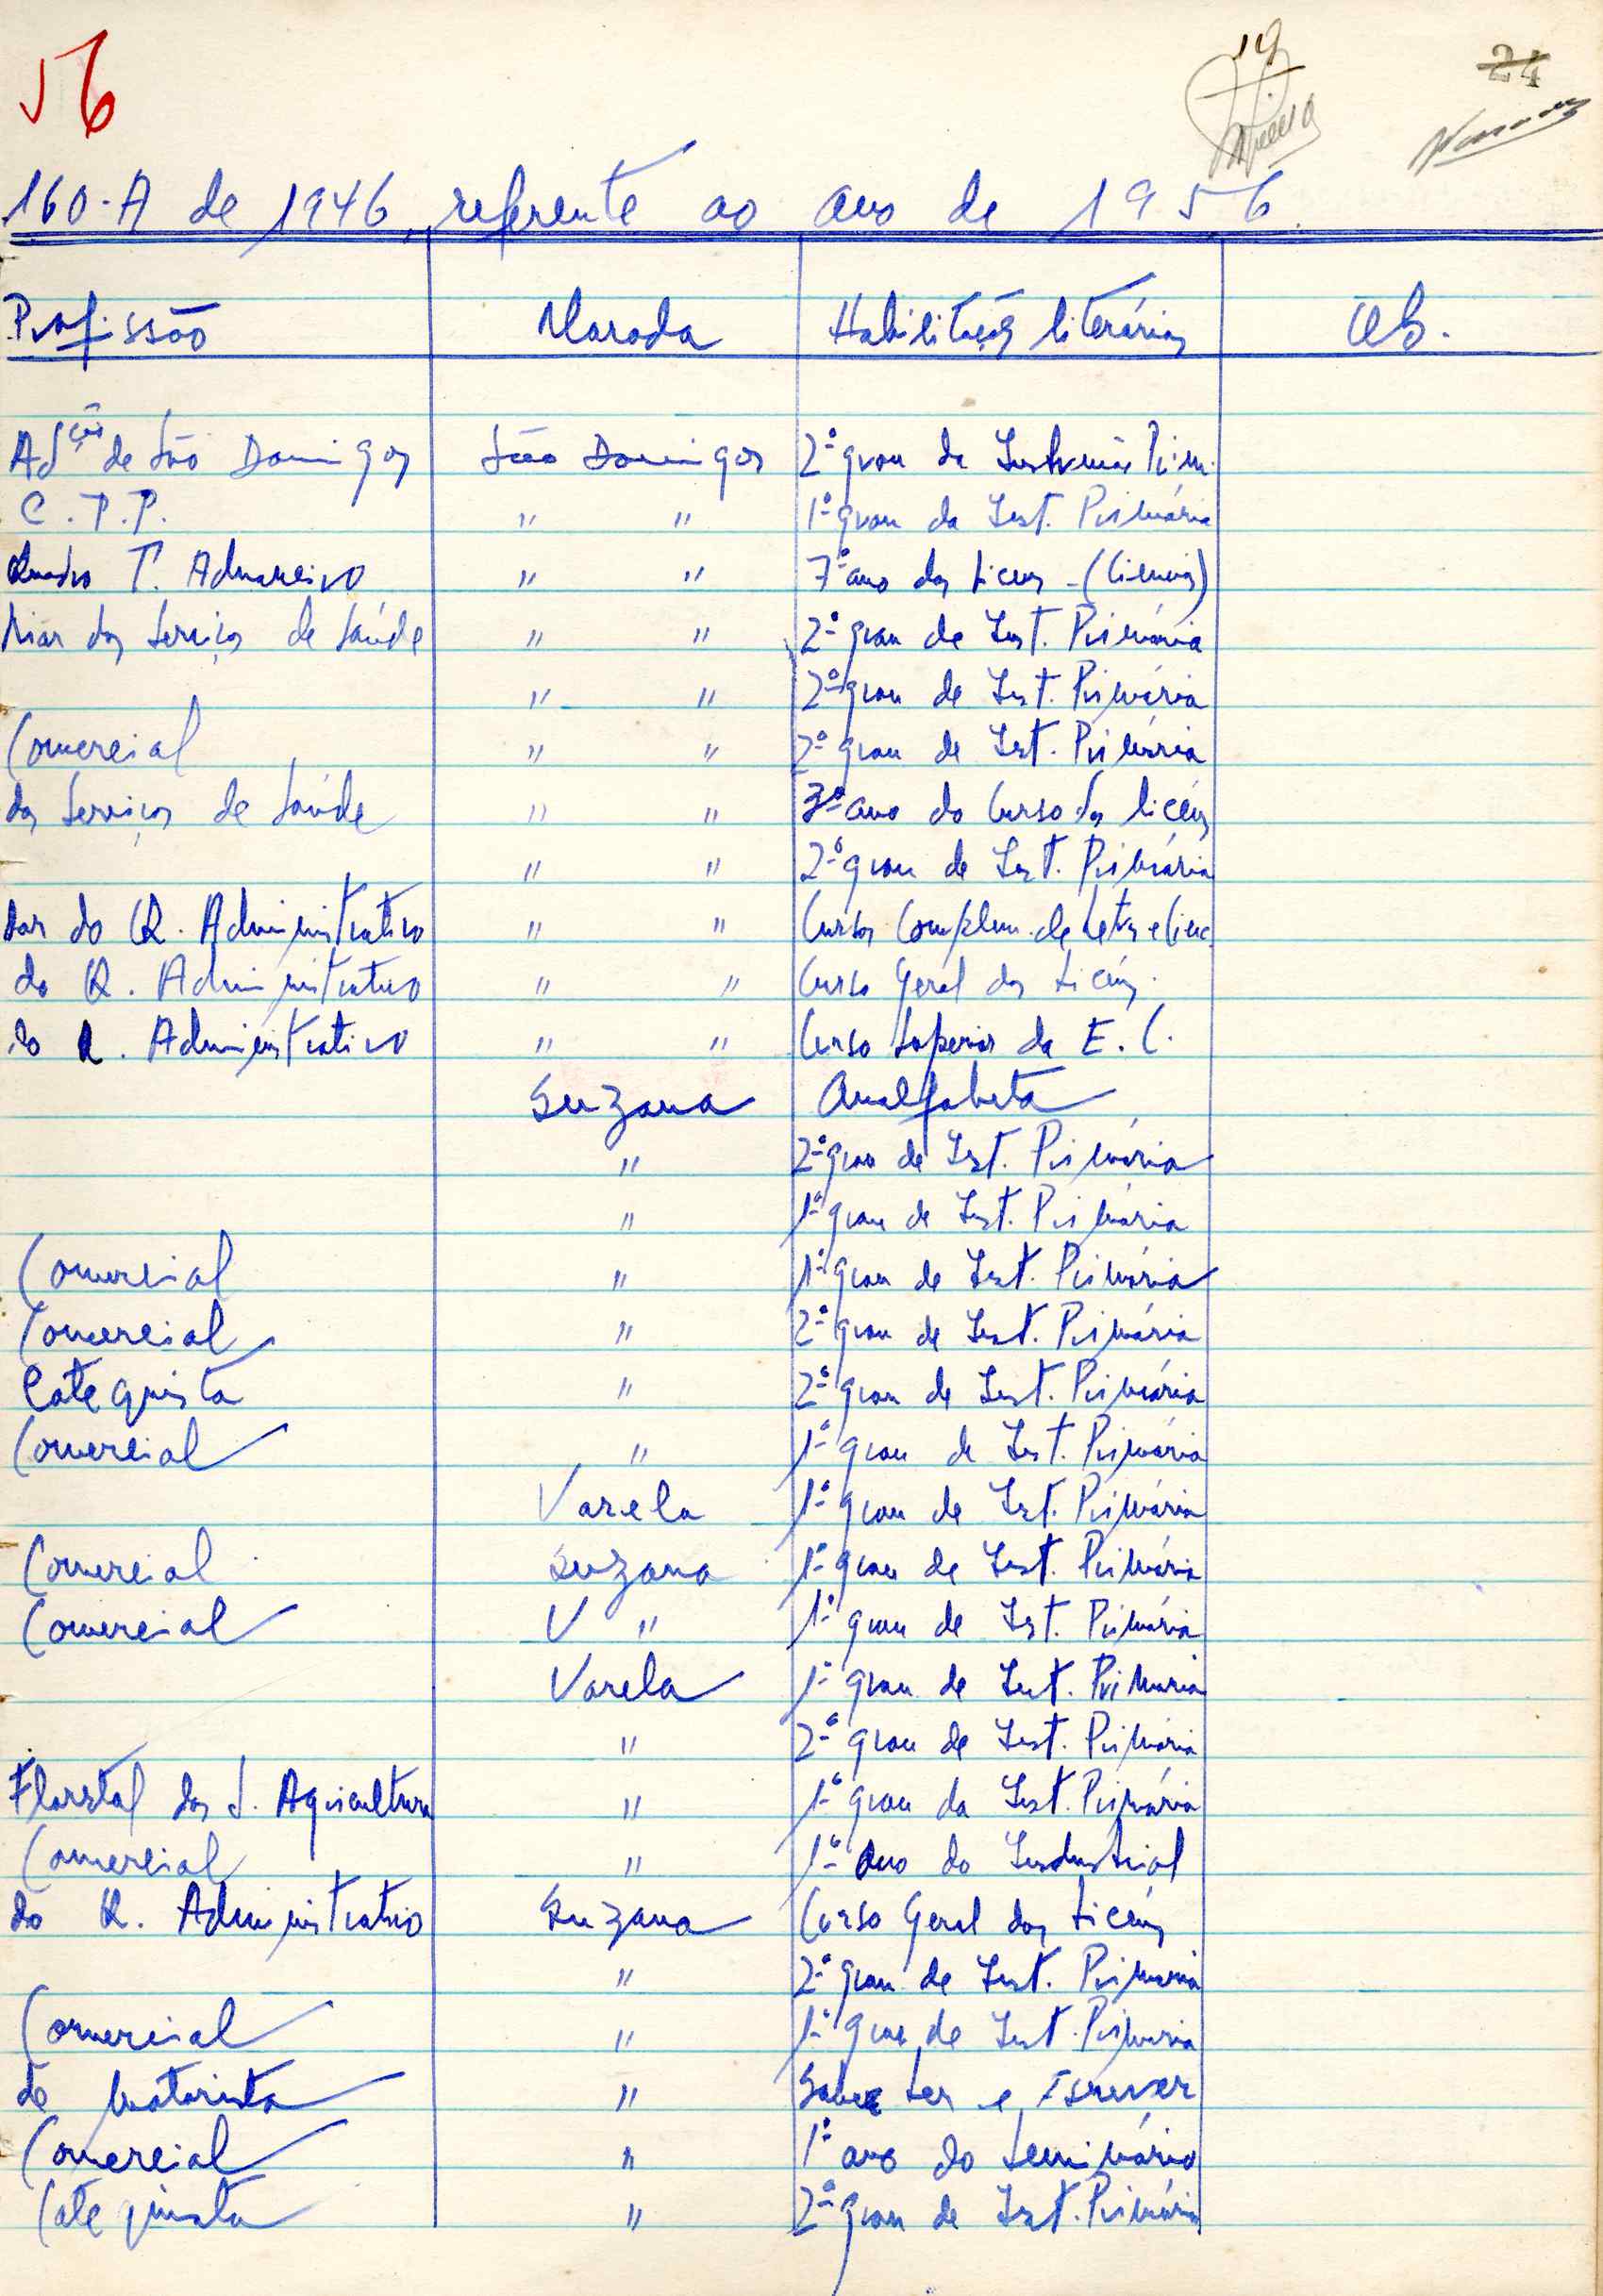 56
19
24
160-A de 1946, referente ao ano de 1956.
Profissão Morada Habilitações literárias Obs.
Adção de São Domingos São Domingos 2º grau da Instrução Prim.
C.T.P. " " 1º grau da Inst. Primária
Quadro T. Aduaneiro " " 7º ano dos Liceus - (Ciências)
liar dos Serviços de Saúde " " 2º grau de Inst. Primária
" " 2º grau de Inst. Primária
Comercial " " 2º grau de Inst. Primária
dos Serviços de Saúde " " 3º ano do Curso dos licéus
" " 2º grau de Inst. Primária
do Q. Administrativo " " Cursos Complem. de Letras e Cienc.
do Q. Administrativo " " Curso Geral dos Licéus.
do Q. Administrativo " " Curso Superior da E. C.
Suzana Analfabeta
" 2º grau de Inst. Primária
" 1º grau de Inst. Primária
Comercial " 1º grau de Inst. Primária
Comercial " 2º grau de Inst. Primária
Catequista " 2º grau de Inst. Primária
Comercial " 1º grau de Inst. Primária
Varela 1º grau de Inst. Primária
Comercial Suzana 1º grau de Inst. Primária
Comercial V " 1º grau de Inst. Primária
Varela 1º grau de Inst. Primária
" 2º grau de Inst. Primária
Florestal dos S. Agricultura " 1º grau da Inst. Primária
Comercial " 1º Ano do Industrial
do Q. Administrativo Suzana Curso Geral dos Licéus
" 2º grau de Inst. Primária
Comercial " 1º grau de Inst. Primária
de Motorista " Sabe Ler e Escrever
Comercial " 1º ano do Seminário
Catequista " 2º grau de Inst. Primária